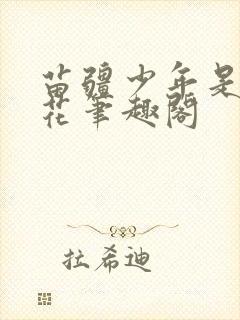 苗疆少年是
花笔趣阁
拉希迪